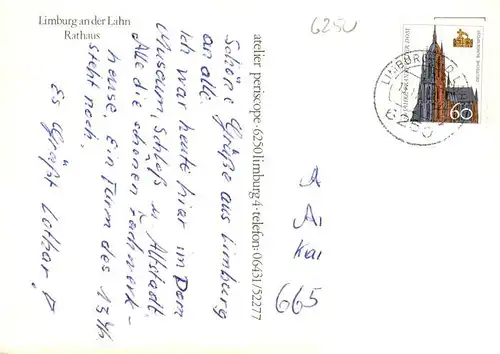 Limburg an der Lahn
Rathaus
Schöne Grüße aus Limburg
an alle.
Ich war heute hier im Dom
Museum, Schloß u. Altstadt.
Alle die schönen Fachwerk-
heuse, ein Turm des 13 Jh
steht noch.
Es Grüßt Lothar!
atelier periscope · 6250 limburg 4 · telefon: 06431/52277
6250
60
A
Kai
665